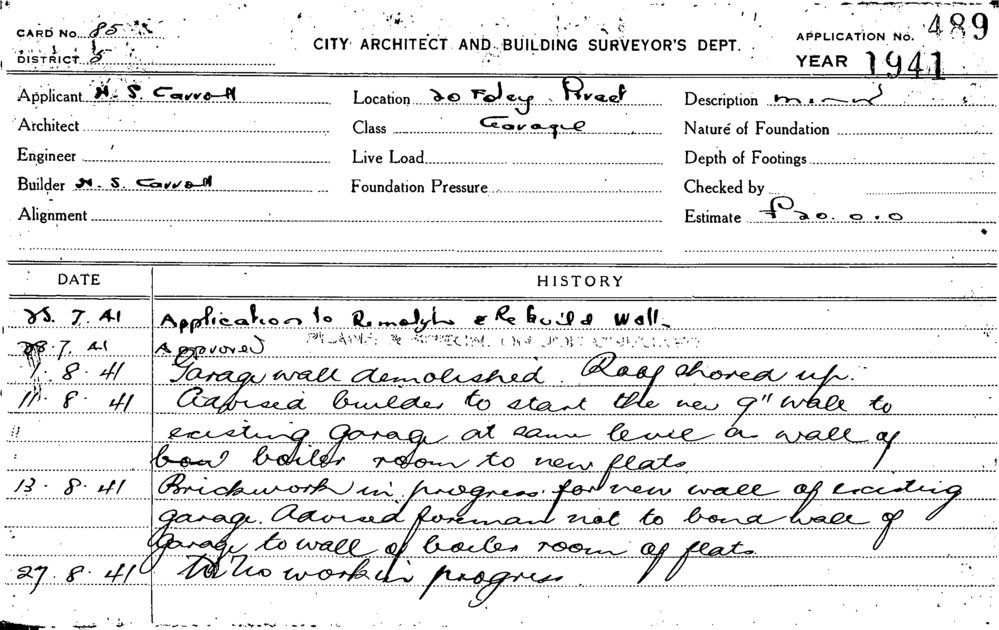 CARD No. 85
DISTRICT 5
CITY ARCHITECT AND BUILDING SURVEYOR'S DEPT.
APPLICATION No. 489
YEAR 1941
Applicant H. S. Carroll
Location 20 Foley Street
Description
Architect
Class Garage
Nature of Foundation
Engineer
Live Load
Depth of Footings
Builder H. S. Carroll
Foundation Pressure
Checked by
Alignment
Estimate £20.0.0
DATE HISTORY
25. 7. 41 Application to Demolish & Rebuild Wall.
28. 7. 41 Approved PLANS & SPECIN. ON JOB
1. 8. 41 Garage wall demolished. Roof shored up.
11. 8. 41 Advised builder to start the new 9" wall to
existing garage at same level as wall of
boiler room to new flats
13. 8. 41 Brickwork in progress for new wall of existing
garage. Advised foreman not to bond wall of
garage to wall of boiler room of flats
27. 8. 41 No work in progress.